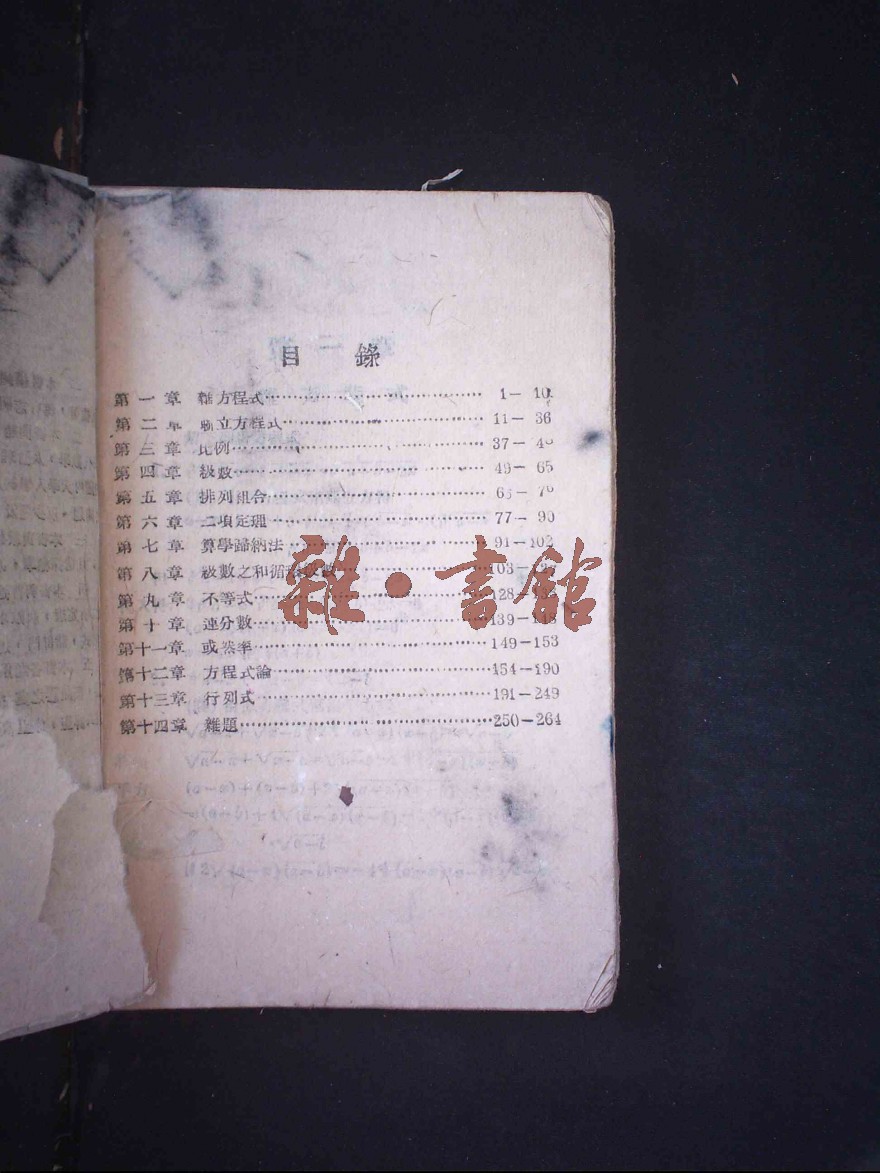 目 錄
第一章 雜方程式 1—10
第二章 聯立方程式 11—36
第三章 比例 37—
第四章 級數 49—65
第五章 排列組合
第六章 二項定理 77—90
第七章 算學歸納法 91—102
第八章 級數之和循環級數 103—
第九章 不等式 128—
第十章 連分數 139—
第十一章 或然率 149—153
第十二章 方程式論 154—190
第十三章 行列式 191—249
第十四章 雜題 250—264
雜·書館